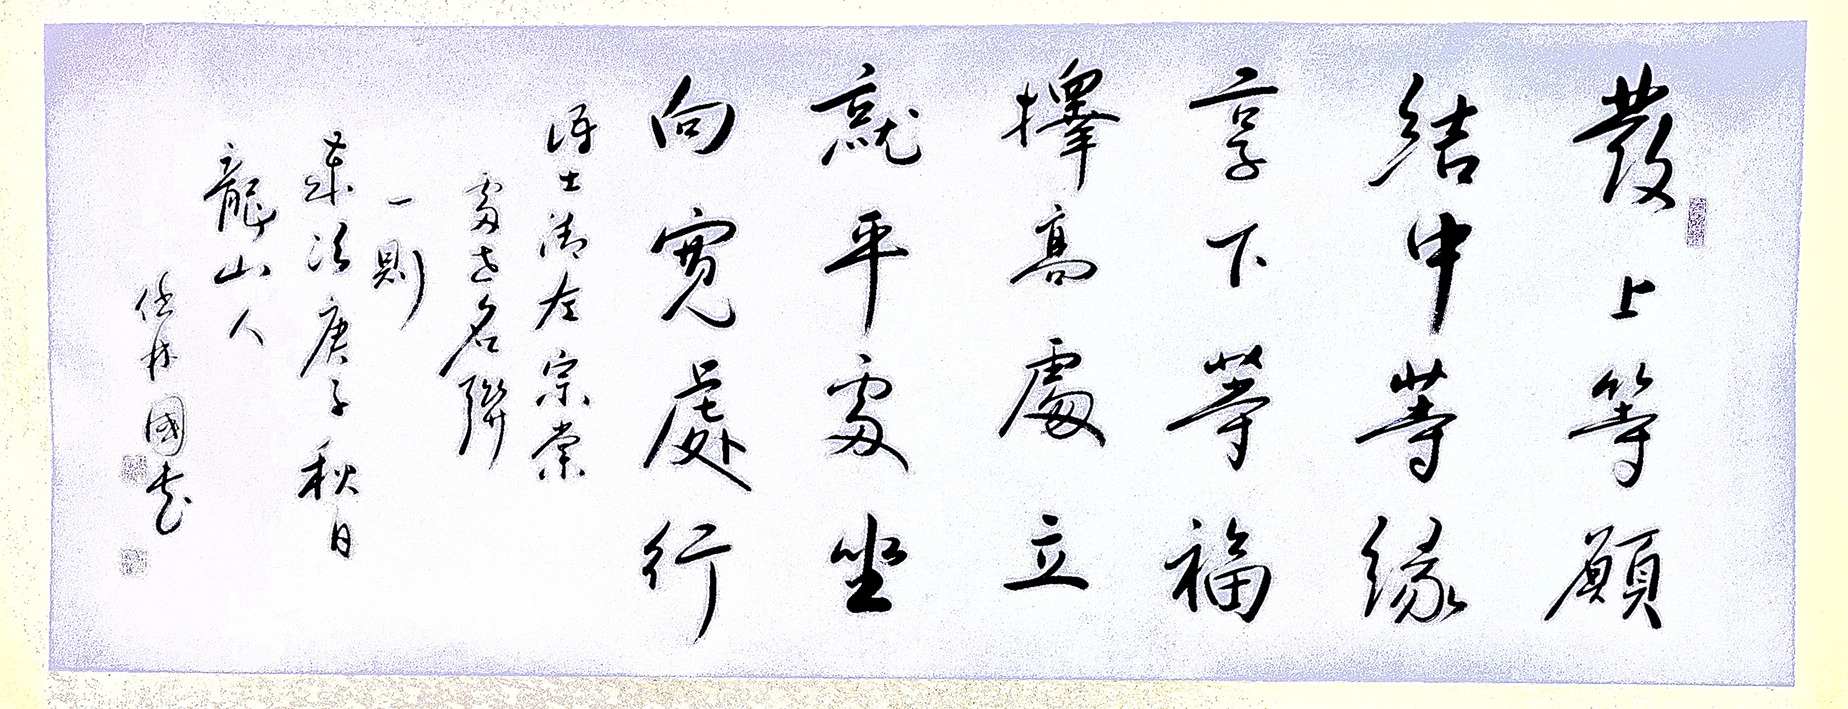 發上等願
結中等緣
享下等福
擇高處立
就平處坐
向寬處行
士清左宗棠
處世名聯
一則
歲次庚子秋日
龍山人
林國書